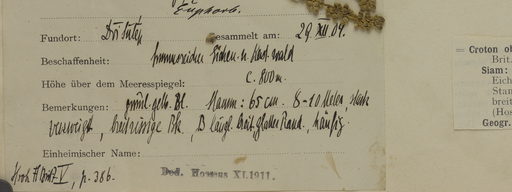 Euphorb.
Fundort: Doi Sutep Gesammelt am: 29. XII. 04.
Beschaffenheit: Eichen- u. wald
Höhe über dem Meeresspiegel: c. 800m.
Bemerkungen: gelb. Bl. Stamm: 65 cm. 8-10 Meter, stark
verzweigt, breitrissige Rde, B längl. breit, glatter Rand, häufig
Einheimischer Name:
V, p. 386.
Ded. Hosseus XI.1911.
Croton ob
Brit.
Siam:
Eich
Stan
breit
(Hos
Geogr.